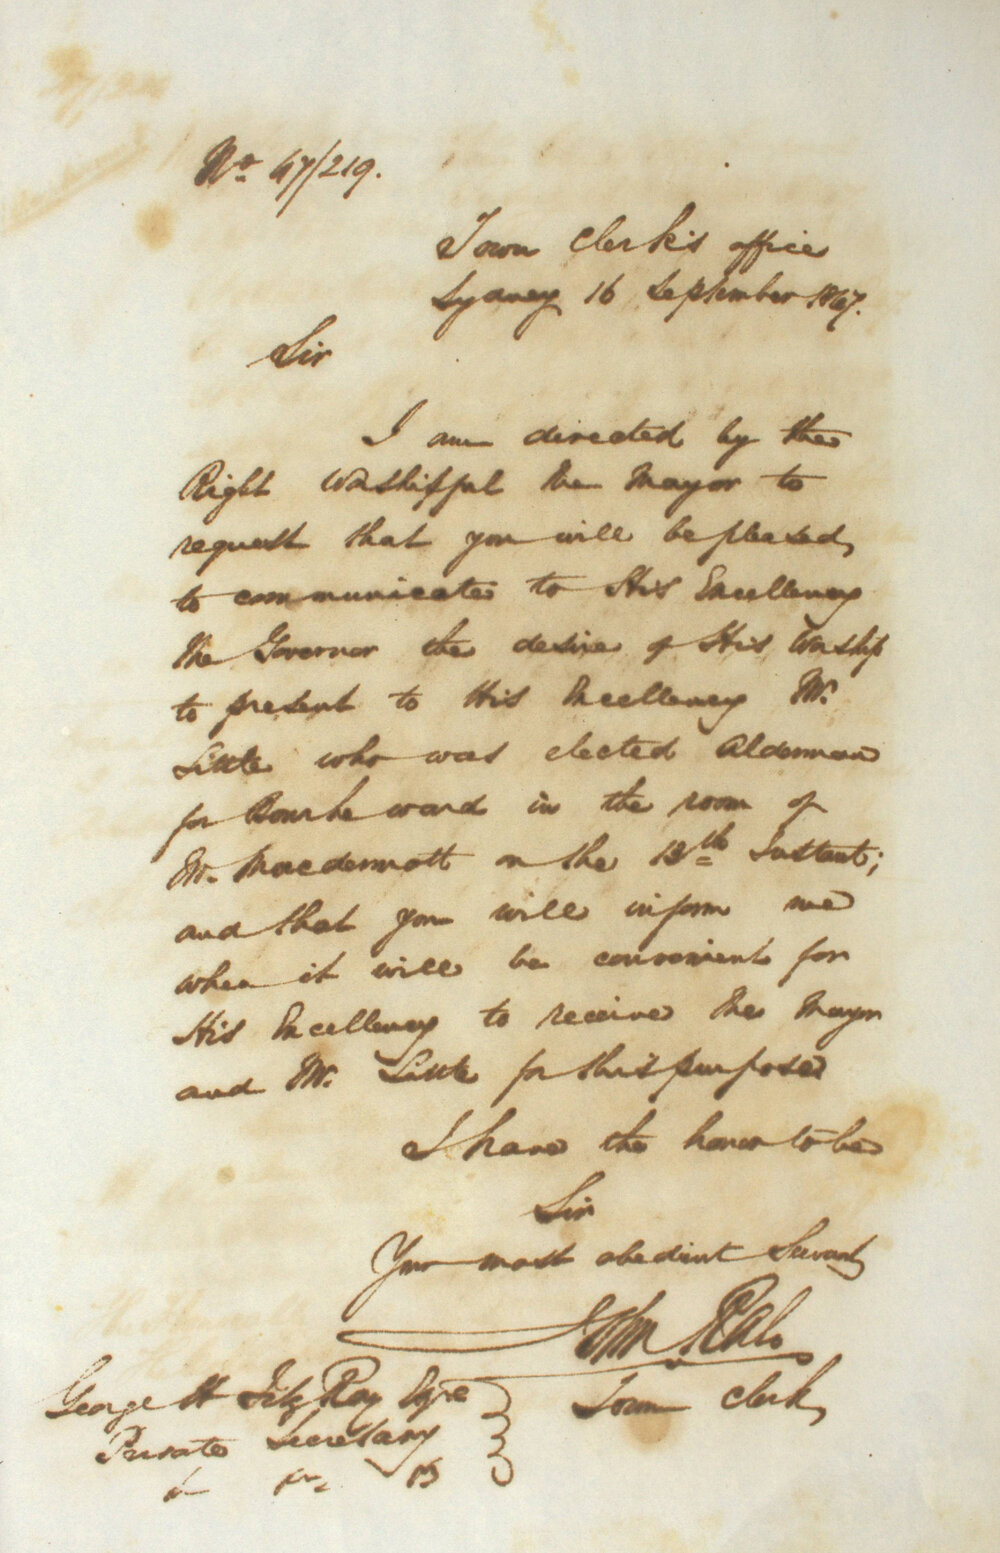 No. 47/219.
Town Clerk's office
Sydney 16 September 1847.
Sir
I am directed by the
Right Worshipful the Mayor to
request that you will be pleased
to communicate to His Excellency
the Governor the desire of His Worship
to present to His Excellency Mr.
Little who was elected Alderman
for Bourke ward in the room of
Mr. Macdermott on the 13th Instant;
and that you will inform me
when it will be convenient for
His Excellency to receive the Mayor
and Mr. Little for this purpose
I have the honor to be
Sir
Your most obedient Servant
John Rae
Town Clerk
George H Fitz Roy Esqre
Private Secretary